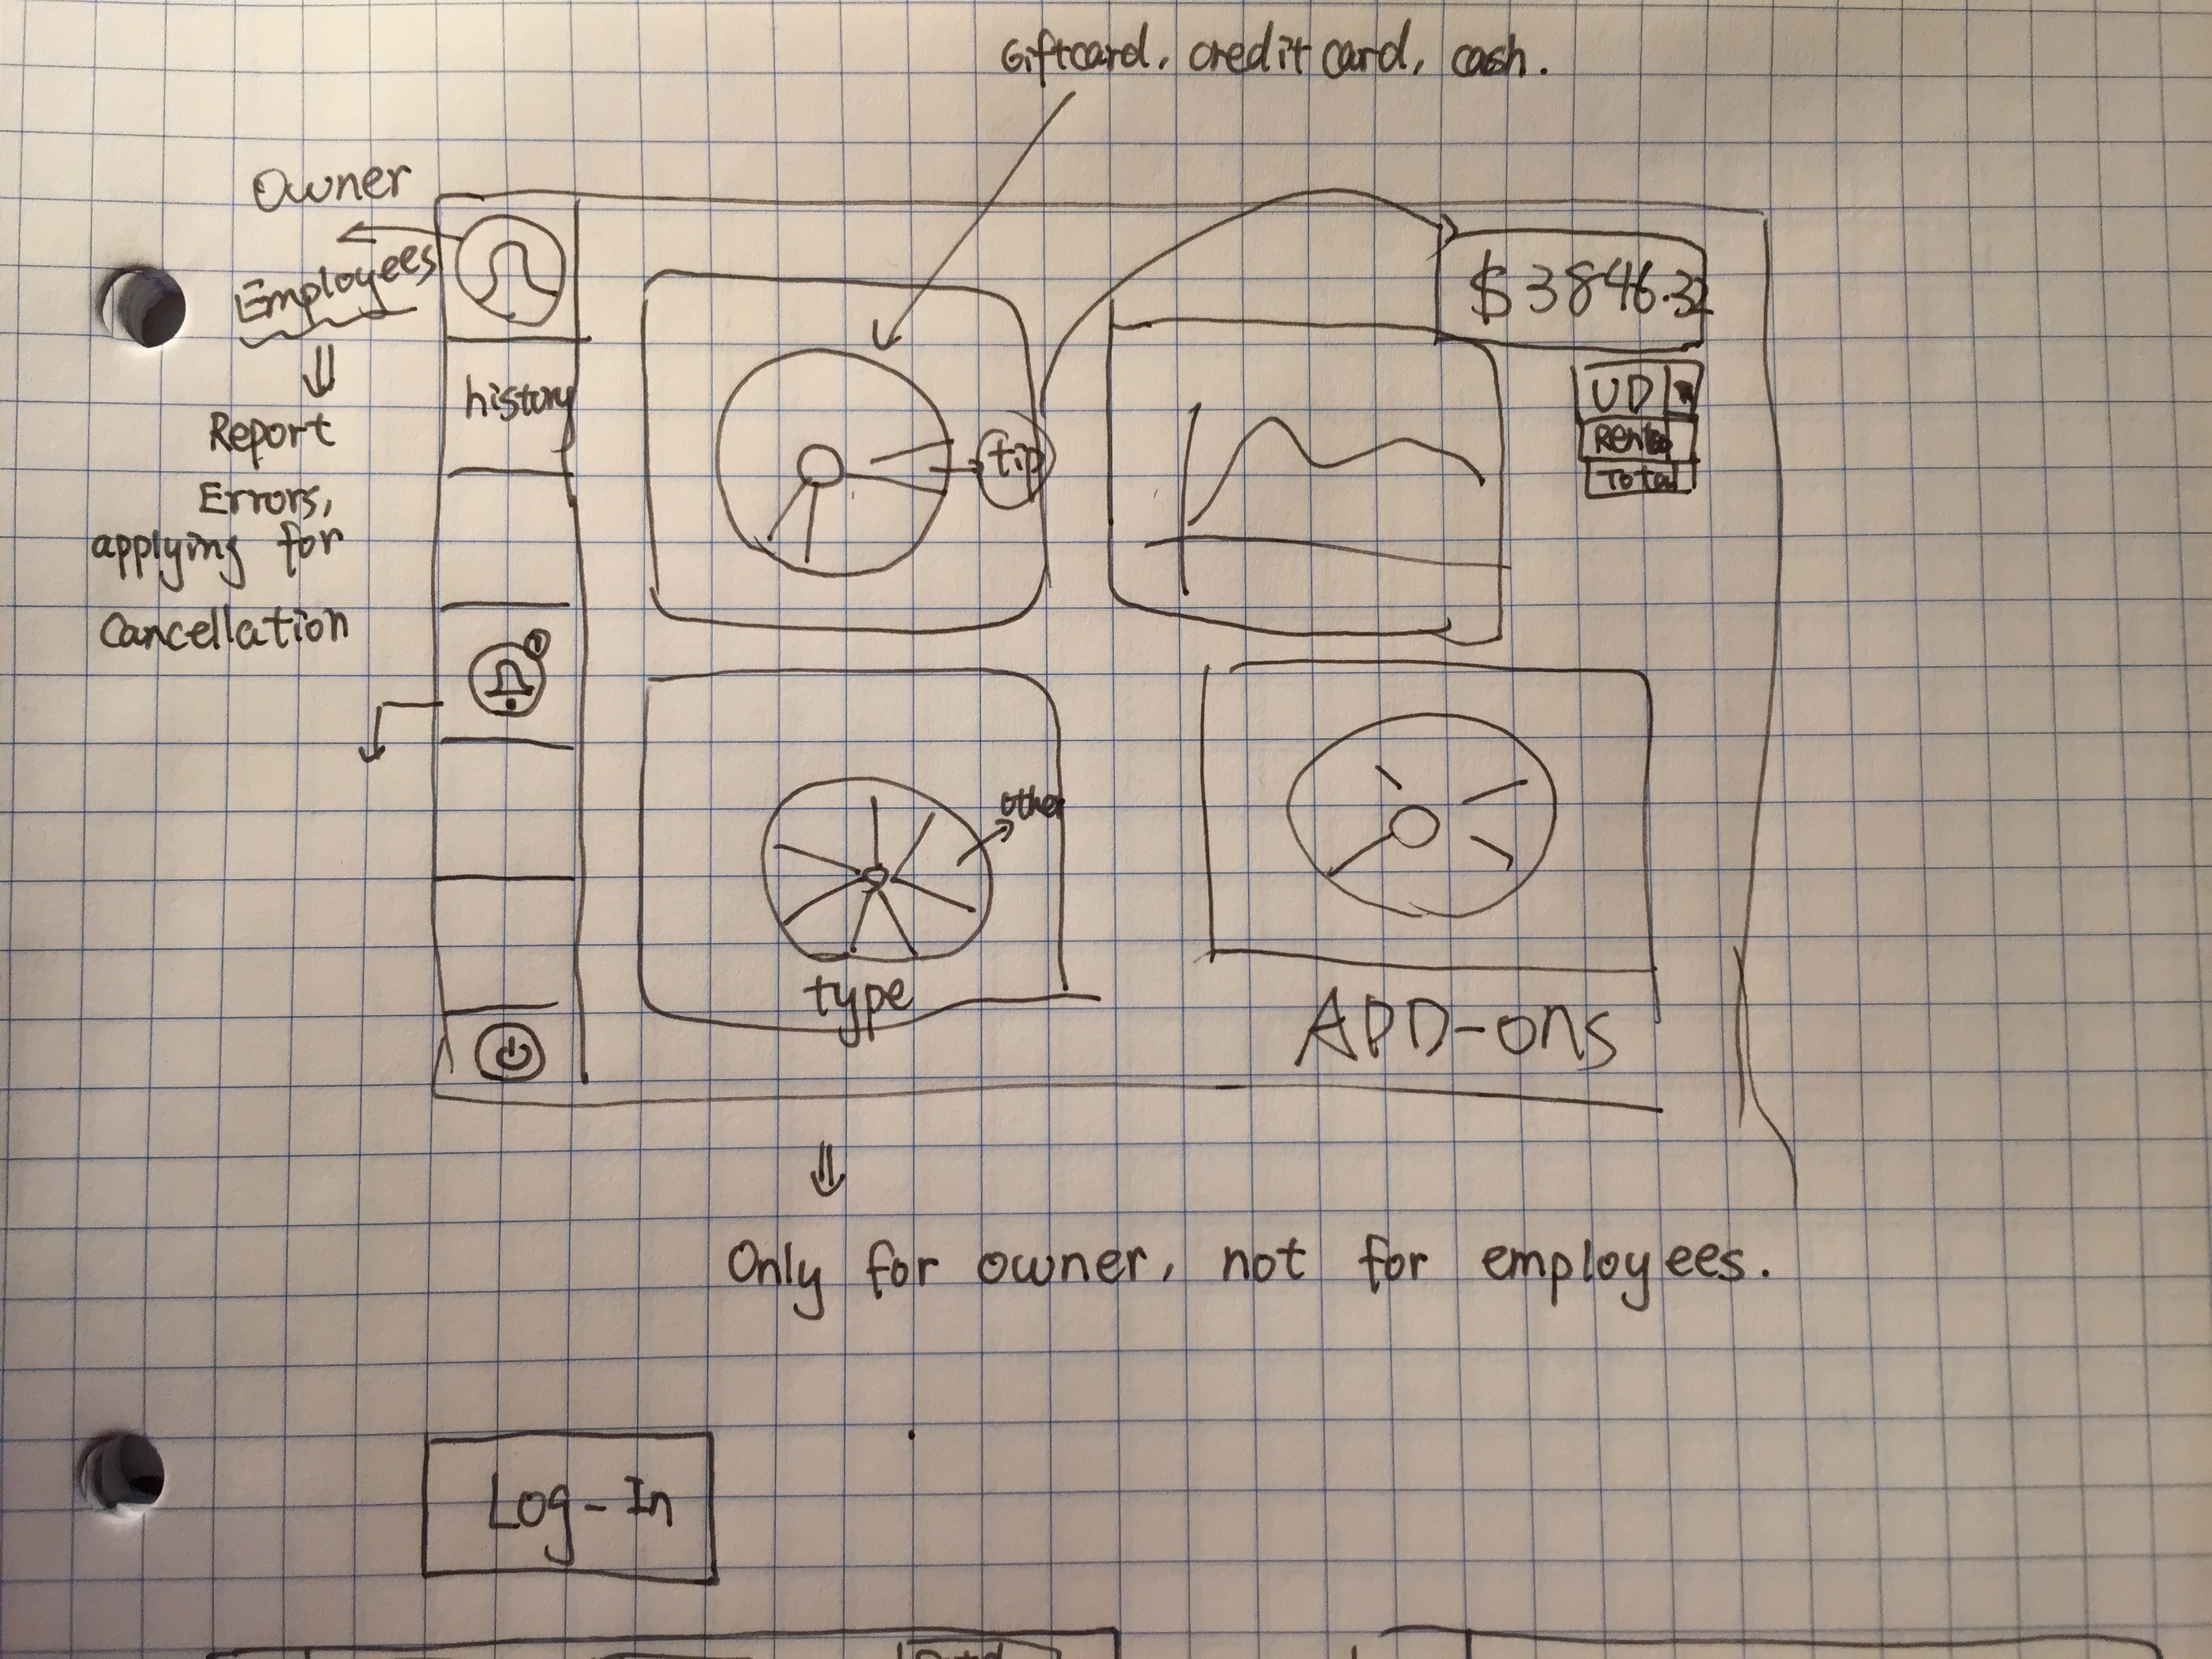 Giftcard, credit card, cash.
Owner
Employees
Report
Errors,
applying for
Cancellation
history
tip
$3846.32
UD
Total
other
type
ADD-ons
Only for owner, not for employees.
Log-In